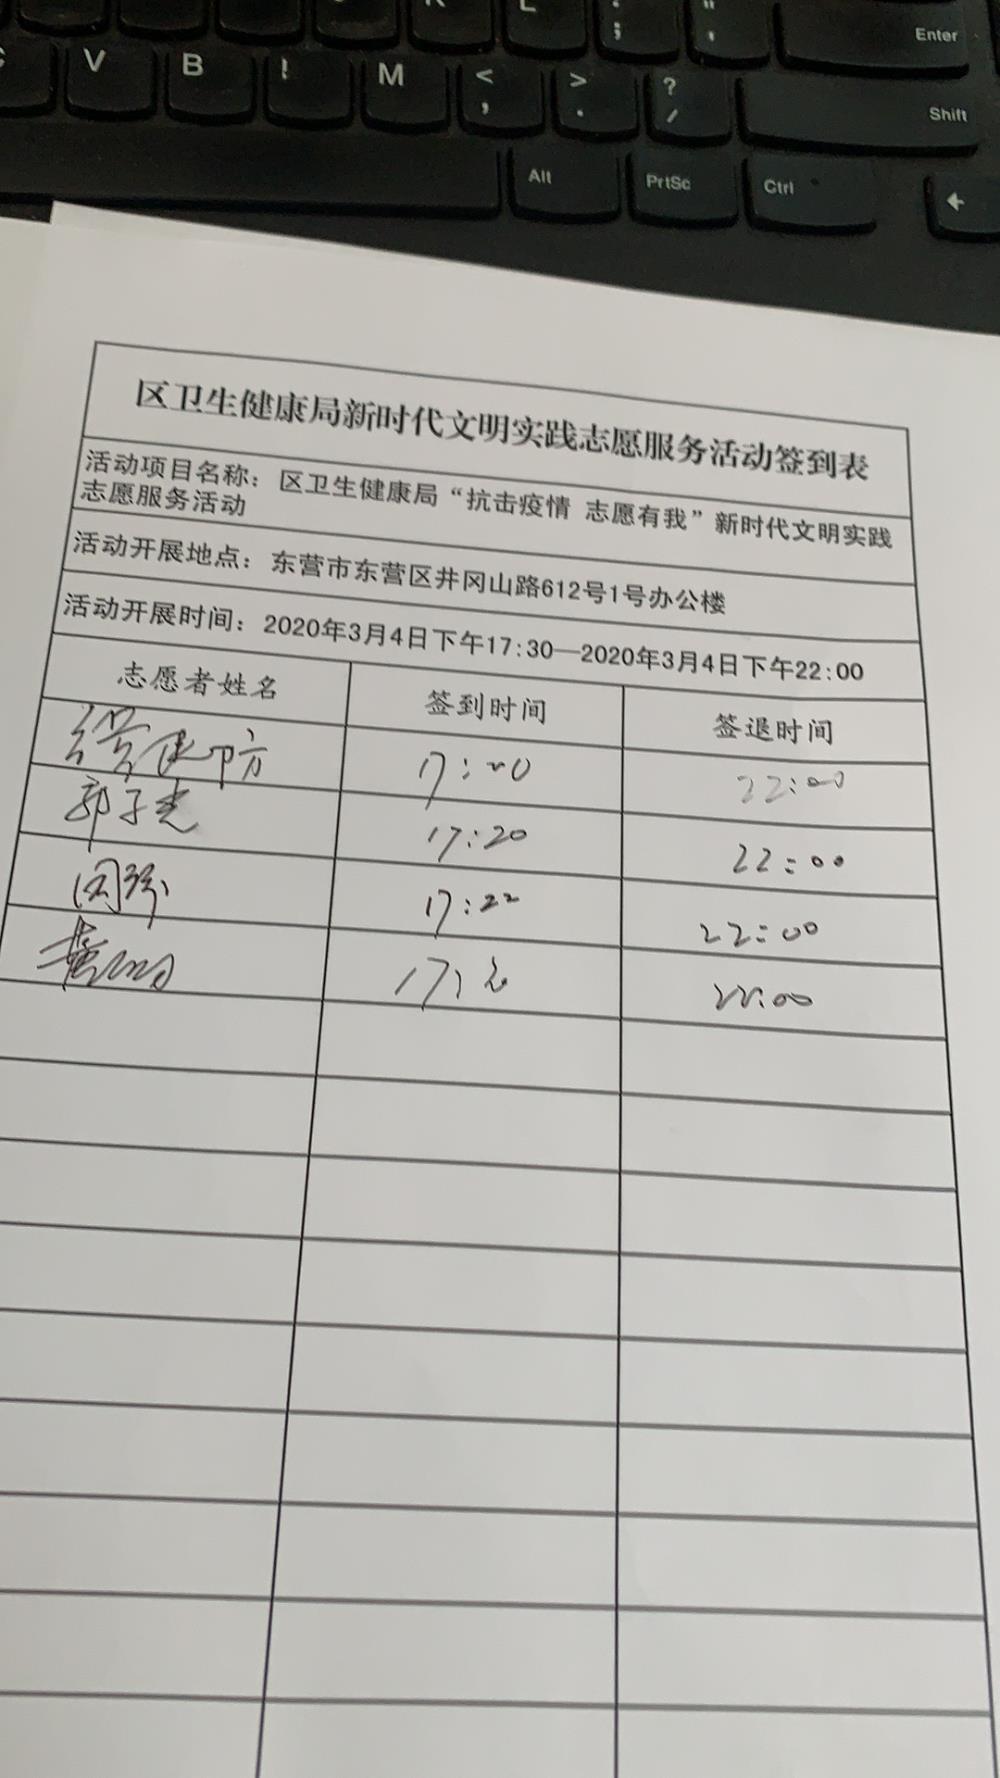 K
L
: ;
" '
Enter
V
B
!
M
< ,
> .
? /
Shift
Alt
PrtSc
Ctrl
←
区卫生健康局新时代文明实践志愿服务活动签到表
活动项目名称：区卫生健康局“抗击疫情 志愿有我”新时代文明实践
志愿服务活动
活动开展地点：东营市东营区井冈山路612号1号办公楼
活动开展时间：2020年3月4日下午17:30—2020年3月4日下午22:00
志愿者姓名 签到时间 签退时间
17:20 22:00
郭子光 17:20 22:00
17:22 22:00
22:00